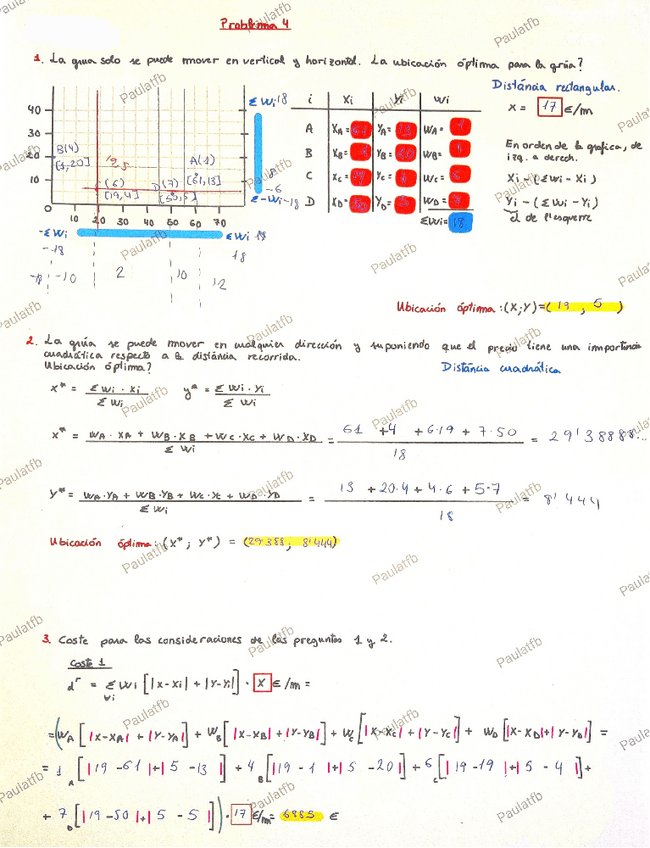 Problema 4
1. La grua solo se puede mover en vertical y horizontal. La ubicación óptima para la grúa?
Distáncia rectangular.
x = 17 €/m
En orden de la grafica, de
izq. a derech.
Xi - (ΣWi - Xi)
Yi - (ΣWi - Yi)
el de l'esquerre
40
30
20
10
0
10 20 30 40 50 60 70
B(4)
[1,20]
A(1)
[61,13]
(6)
[19,4]
D(7)
ΣWi 18
-6
-ΣWi -18
-ΣWi
-18
ΣWi 18
18
-18 -10 2 10 12
i Xi Yi Wi
A XA= YA= WA=
B XB= YB= WB=
C XC= YC= WC=
D XD= YD= WD=
ΣWi= 18
Ubicación óptima: (X;Y)=(19, 5)
2. La grúa se puede mover en cualquier dirección y suponiendo que el precio tiene una importáncia
cuadrática respecto a la distáncia recorrida.
Ubicación óptima?
Distáncia cuadrática
x* = Σ Wi · Xi / Σ Wi y* = Σ Wi · Yi / Σ Wi
x* = WA · XA + WB · XB + WC · XC + WD · XD / Σ Wi = 61 + 4 + 6·19 + 7·50 / 18 = 29'38888...
y* = WA · YA + WB · YB + WC · YC + WD · YD / Σ Wi = 13 + 20·4 + 4·6 + 5·7 / 18 = 8'444
Ubicación óptima: (x*; y*) = (29'388; 8'444)
3. Coste para las consideraciones de las preguntas 1 y 2.
Coste 1
dʳ = Σ Wi [|X-Xi| + |Y-Yi|] · x €/m =
=(WA [|X-XA| + |Y-YA|] + WB [|X-XB|+|Y-YB|] + WC [|X-XC|+|Y-YC|] + WD [|X-XD|+|Y-YD|] =
= 1 A [|19-61|+|5-13|] + 4 B [|19-1|+|5-20|] + 6 C [|19-19|+|5-4|] +
+ 7 D [|19-50|+|5-5|]) · 17 €/m = 6885 €
Paulatfb